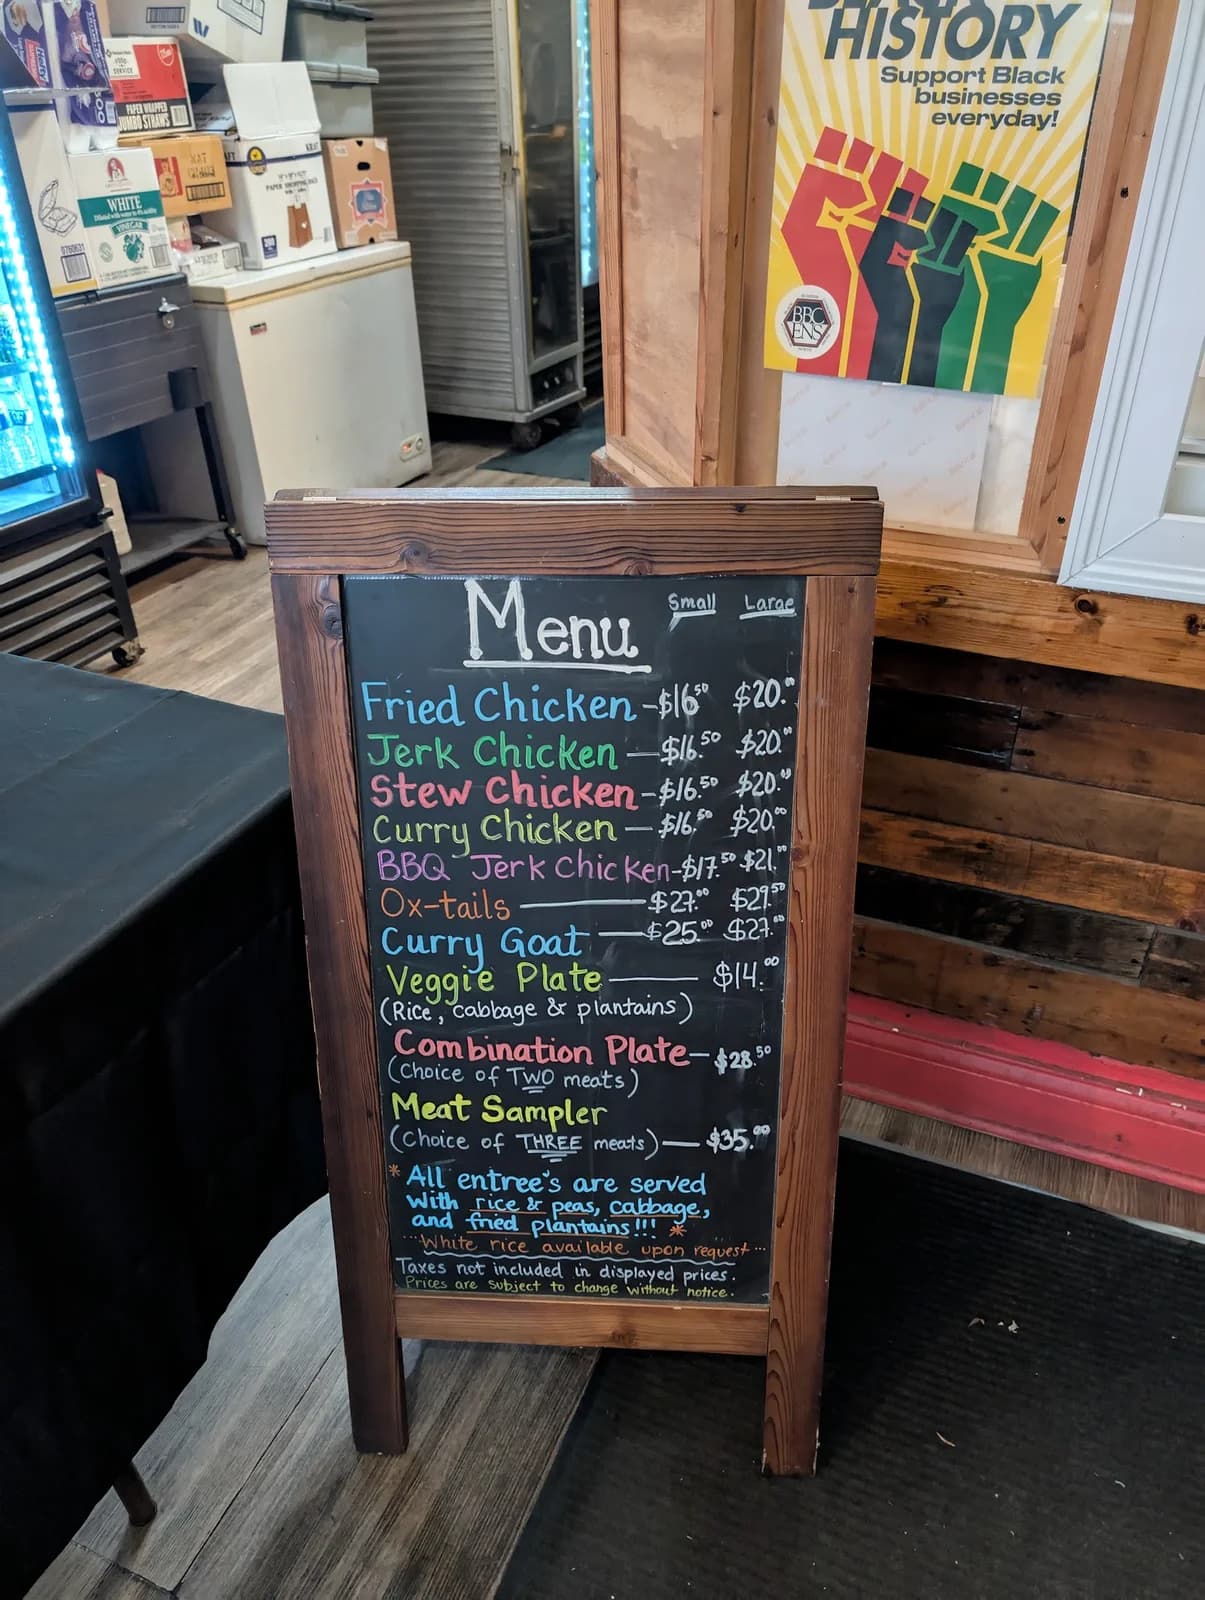 HISTORY
Support Black
businesses
everyday!
BBC
ENS
PAPER WRAPPED
JUMBO STRAWS
WHITE
VINEGAR
KRAFT
PAPER SHOPPING BAGS
Menu Small Large
Fried Chicken - $16.50 $20.00
Jerk Chicken — $16.50 $20.00
Stew Chicken - $16.50 $20.00
Curry Chicken — $16.50 $20.00
BBQ Jerk Chicken - $17.50 $21.00
Ox-tails — $27.00 $29.50
Curry Goat — $25.00 $27.00
Veggie Plate — $14.00
(Rice, cabbage & plantains)
Combination Plate — $28.50
(Choice of TWO meats)
Meat Sampler
(Choice of THREE meats) — $35.00
* All entree's are served
with rice & peas, cabbage,
and fried plantains!!! *
...White rice available upon request...
Taxes not included in displayed prices.
Prices are subject to change without notice.